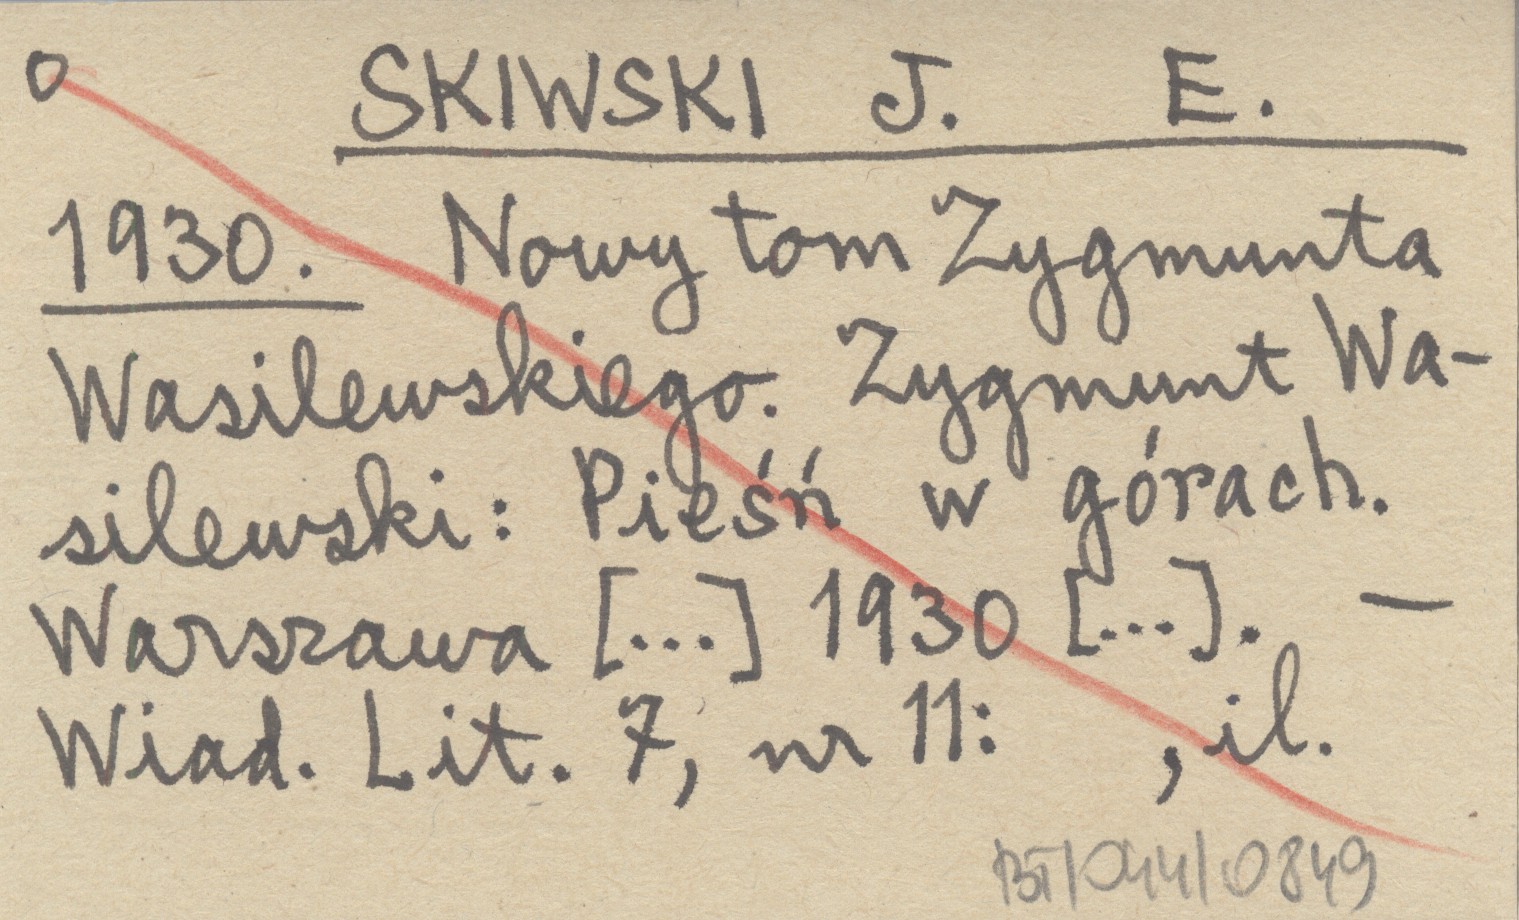 o SKIWSKI J. E.
1930. Nowy tom Zygmunta
Wasilewskiego. Zygmunt Wa-
silewski: Pieśń w górach.
Warszawa [...] 1930 [...]. —
Wiad. Lit. 7, nr 11: , il.
BT/044/0849